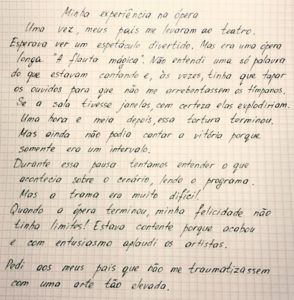 Minha experiência na ópera
Uma vez, meus pais me levaram ao teatro.
Esperava ver um espetáculo divertido. Mas era uma ópera
longa "A flauta mágica". Não entendi uma só palavra
do que estavam cantando e, às vezes, tinha que tapar
os ouvidos para que não me arrebentassem os tímpanos.
Se a sala tivesse janelas, com certeza elas explodiriam.
Uma hora e meia depois, essa tortura terminou.
Mas ainda não podia cantar a vitória porque
somente era um intervalo.
Durante essa pausa tentamos entender o que
acontecia sobre o cenário, lendo o programa.
Mas a trama era muito difícil!
Quando a ópera terminou, minha felicidade não
tinha limites! Estava contente porque acabou
e com entusiasmo aplaudi os artistas.
Pedi aos meus pais que não me traumatizassem
com uma arte tão elevada.